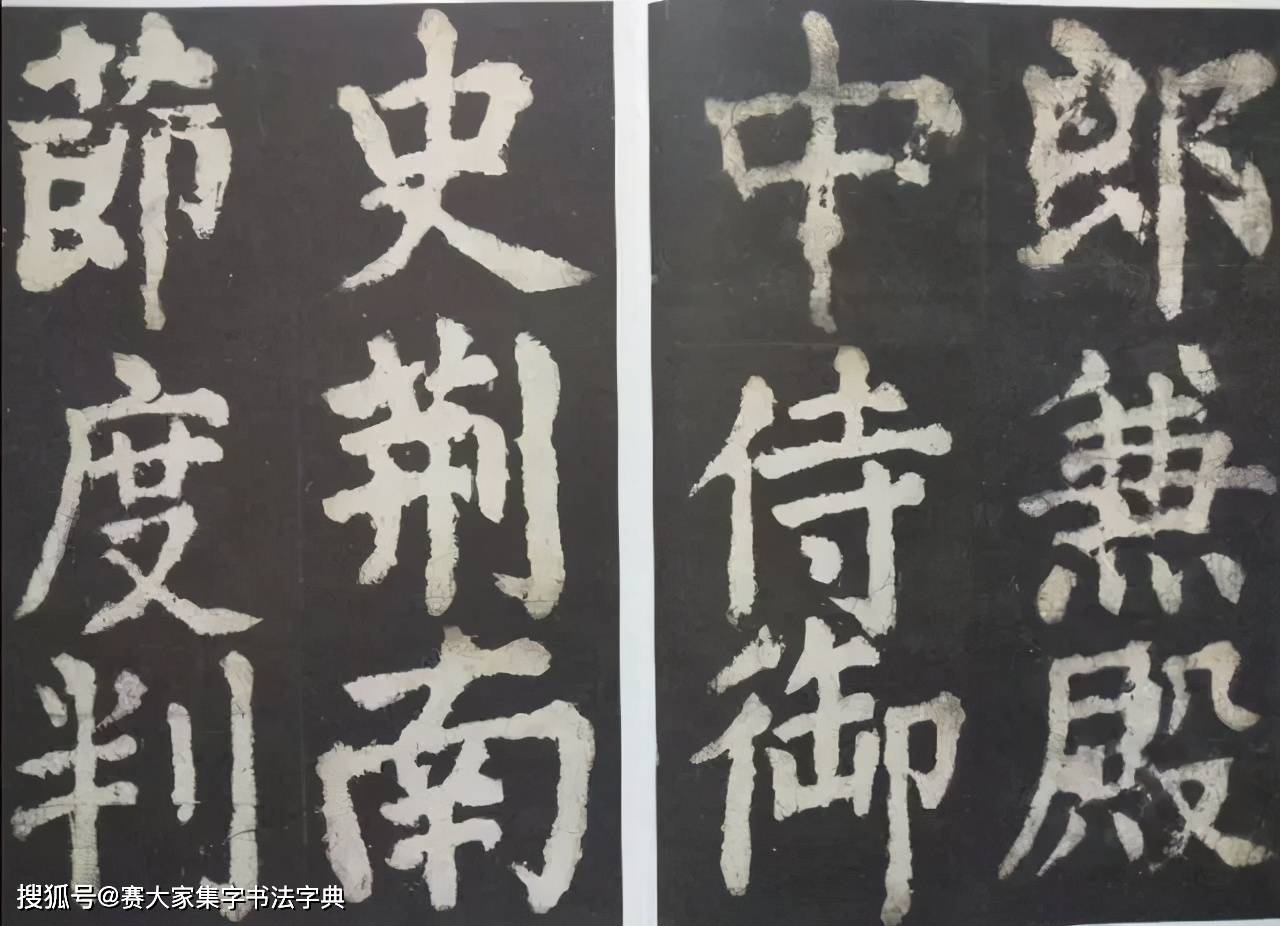 郎兼殿
中侍御
史荆南
節度判
搜狐号@赛大家集字书法字典